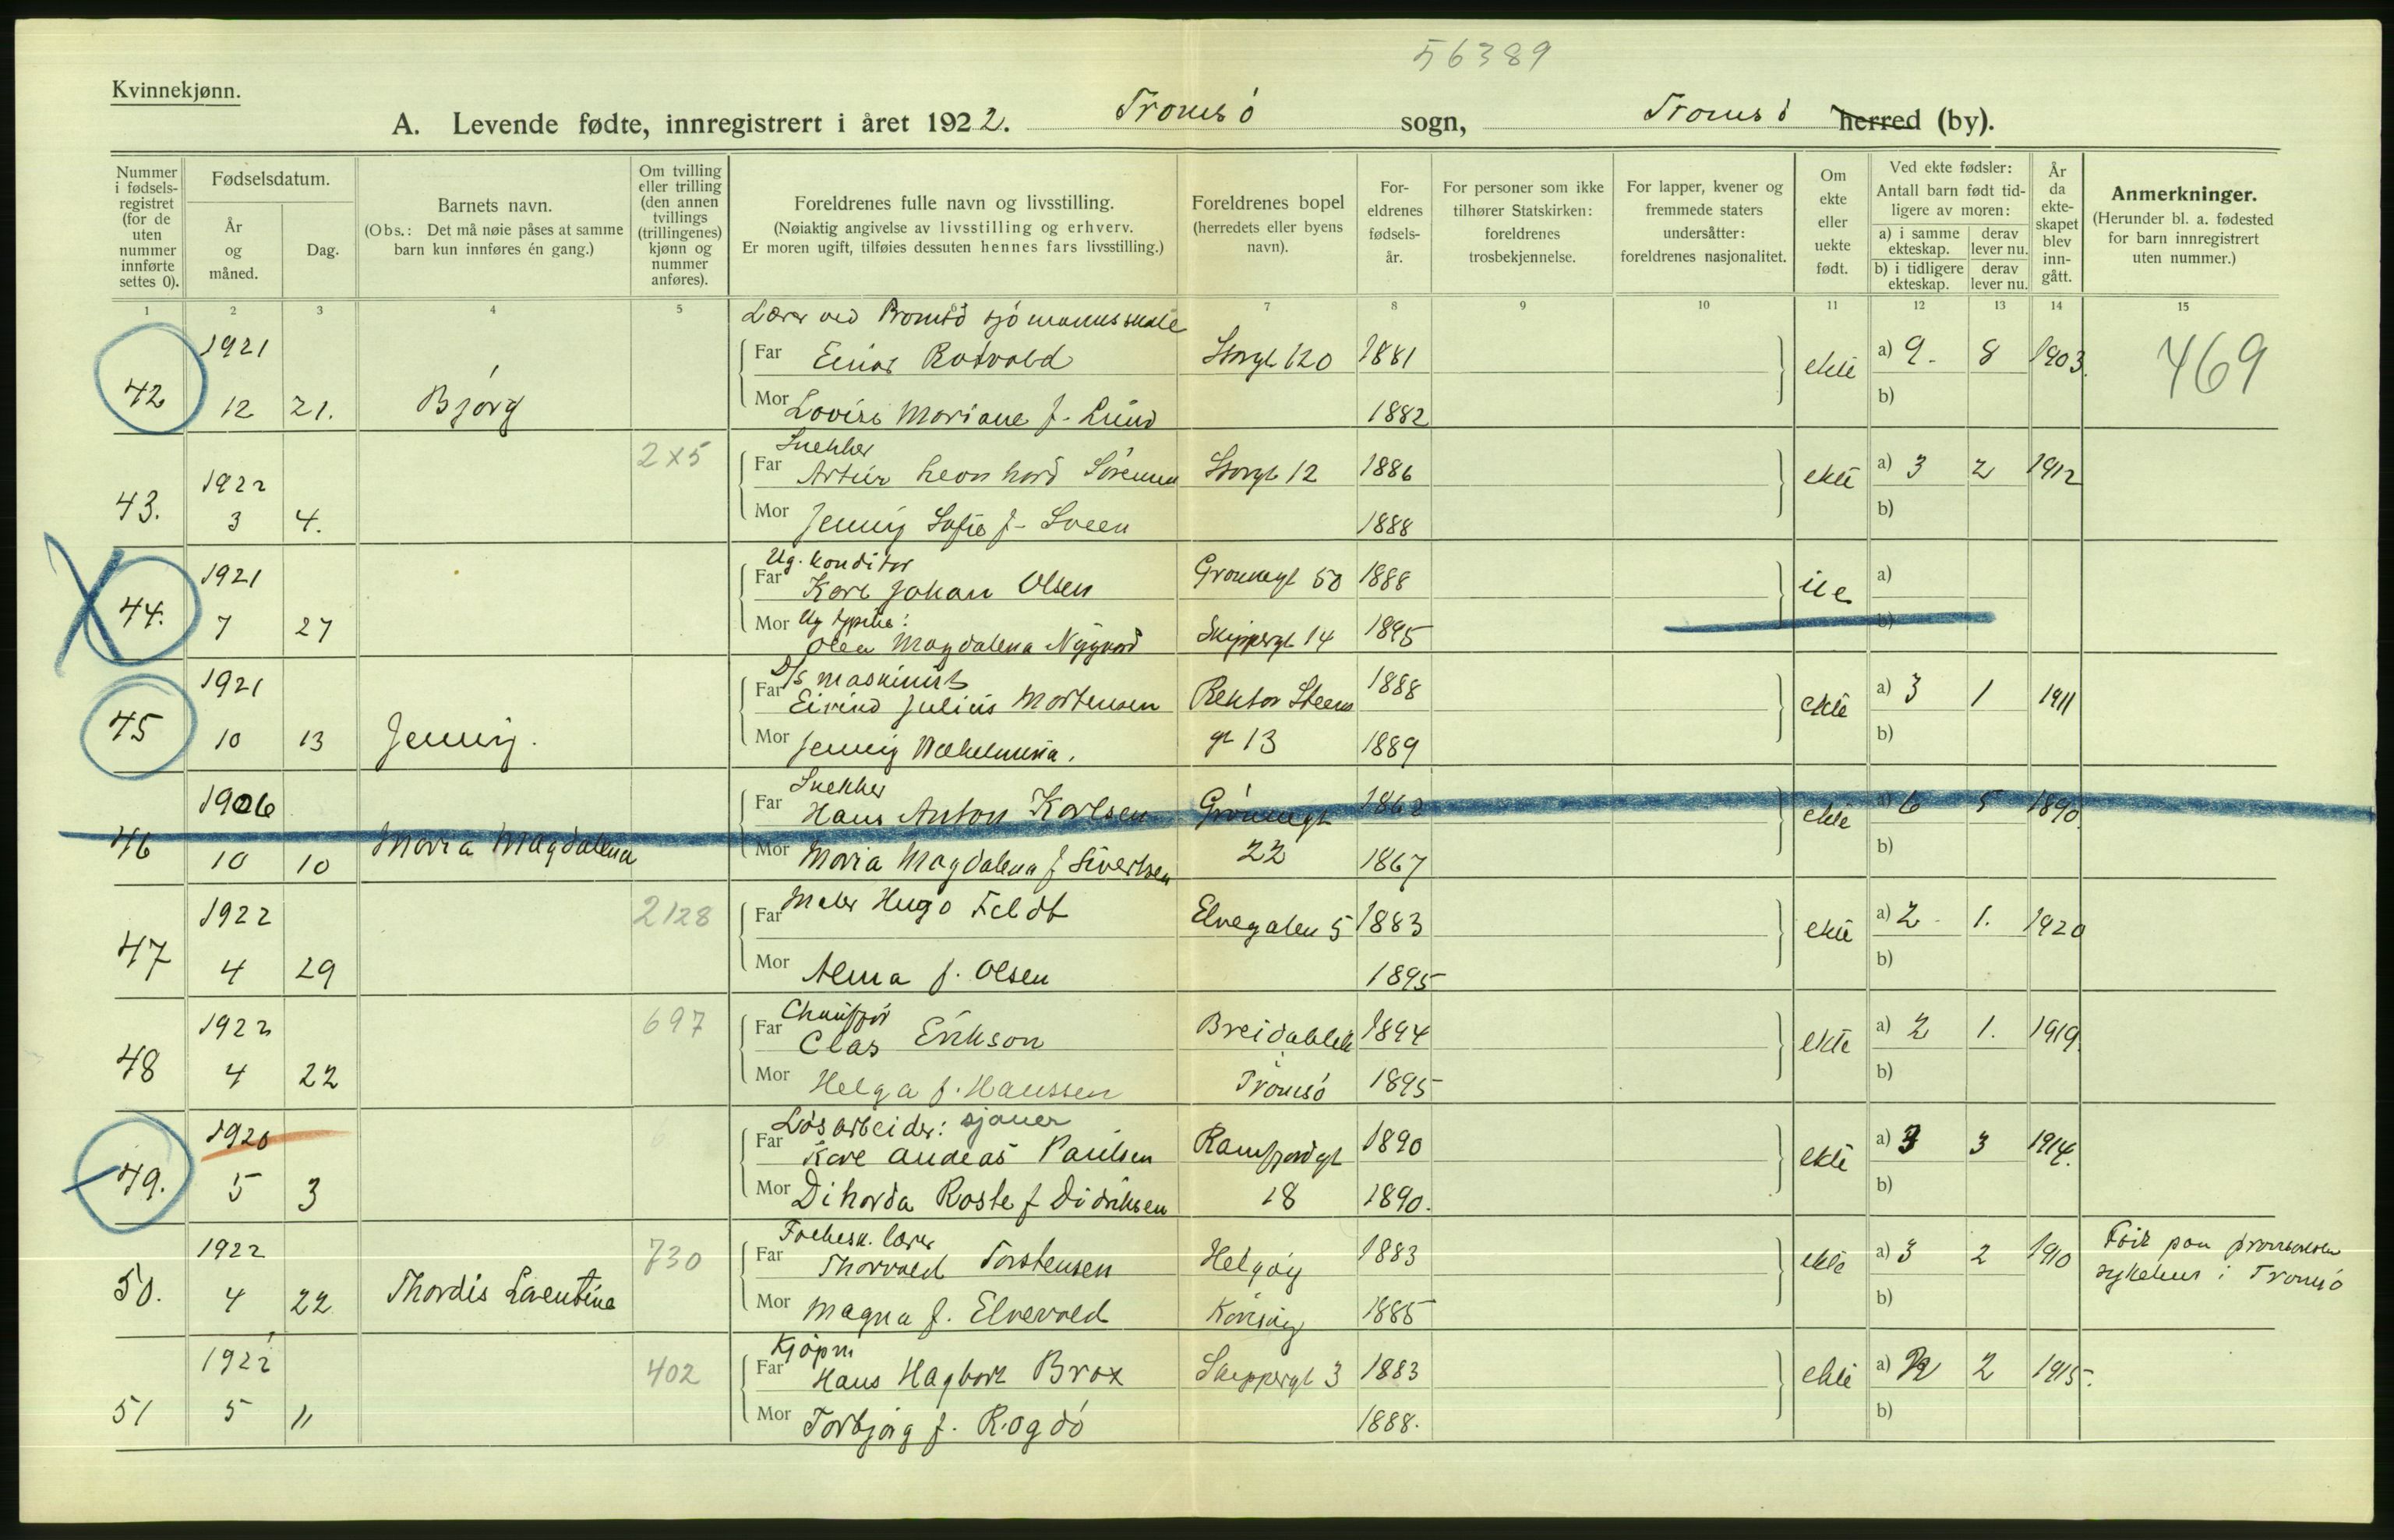 56389
Kvinnekjønn.
A. Levende fødte, innregistrert i året 1922. Tromsø sogn, Tromsø herred (by).
Nummer i fødsels-registret (for de uten nummer innførte settes 0).
Fødselsdatum.
År og måned.
Dag.
Barnets navn.
(Obs.: Det må nøie påses at samme barn kun innføres én gang.)
Om tvilling eller trilling (den annen tvillings (trillingenes) kjønn og nummer anføres).
Foreldrenes fulle navn og livsstilling.
(Nøiaktig angivelse av livsstilling og erhverv.
Er moren ugift, tilføies dessuten hennes fars livsstilling.)
Foreldrenes bopel (herredets eller byens navn).
For-eldrenes fødsels-år.
For personer som ikke tilhører Statskirken: foreldrenes trosbekjennelse.
For lapper, kvener og fremmede staters undersåtter: foreldrenes nasjonalitet.
Om ekte eller uekte født.
Ved ekte fødsler:
Antall barn født tid-ligere av moren:
a) i samme ekteskap.
derav lever nu.
b) i tidligere ekteskap.
derav lever nu.
År da ekte-skapet blev inn-gått.
Anmerkninger.
(Herunder bl. a. fødested for barn innregistrert uten nummer.)
1 2 3 4 5 6 7 8 9 10 11 12 13 14 15
Lærer ved Tromsø sjømannsskole
42 1921 Far Einar Rotvold Storgt 120 1881 ekte a) 9 - 8 1903. 469
12 21. Bjørg Mor Lovise Mariane f. Lund 1882 b)
Snekker
43. 1922 2x5 Far Artur Leonhard Sørensen Storgt 12 1886 ekte a) 3 2 1912
3 4. Mor Jenny Sofie f. Sveen 1888 b)
Ug. konditor
44. 1921 Far Karl Johan Olsen Grønnegt 50 1888 ue a)
7 27 Mor Ug
Olea Magdalena Nygård Skippergt 14 1895 b)
D/s maskinist
45 1921 Far Eivind Julius Mortensen Rektor Steens 1888 ekte a) 3 1 1911
10 13 Jenny. Mor Jenny Wilhelmina. gt 13 1889 b)
Snekker
46 1906 Far Hans Anton Karlsen Grønnegt 1862 ekte a) 6 5 1890.
10 10 Maria Magdalena Mor Maria Magdalena f Sivertsen 22 1867 b)
47 1922 2128 Far Maler Hugo Feldt Elvegaten 5 1883 ekte a) 2 - 1. 1920
4 29 Mor Alma f. Olsen 1895 b)
Chauffør
48 1922 697 Far Clas Erikson Breidablik 1894 ekte a) 2 1. 1919.
4 22 Mor Helga f. Hanssen Tromsø 1895 b)
Løsarbeider: sjauer
49. 1920 Far Kåre Andreas Paulsen Ramfjordgt 1890 ekte a) 3 3 1914.
5 3 Mor Dikorda Roste f Didriksen 18 1890. b)
Folkesk. lærer
50. 1922 730 Far Thorvald Torstensen Helgøy 1883 ekte a) 3 2 1910 Født paa
4 22 Thordis Laventine Mor Magna f. Elvevold 1885 b) sykehus i Tromsø
Kjøpm
51 1922 402 Far Hans Hagbart Brox Skippergt 3 1883 ekte a) 2 2 1915.
5 11 Mor Torbjørg f. Rogdø 1888. b)